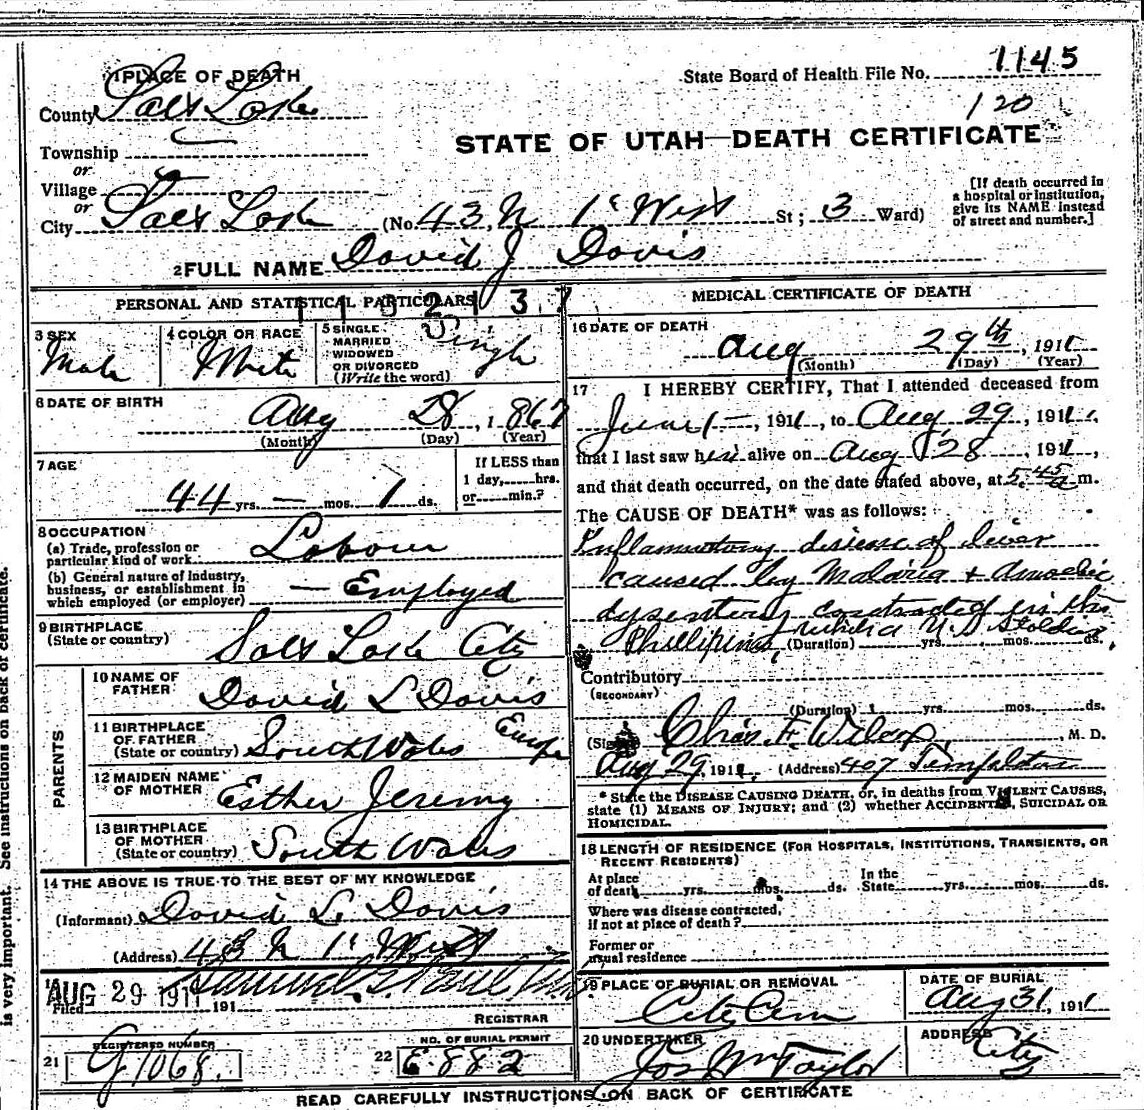 1 PLACE OF DEATH
State Board of Health File No. 1145
120
County Salt Lake
STATE OF UTAH—DEATH CERTIFICATE
Township
or
Village
or
City Salt Lake (No. 43 N 1st West St; 3 Ward)
[If death occurred in
a hospital or institution,
give its NAME instead
of street and number.]
2 FULL NAME David J Davis
PERSONAL AND STATISTICAL PARTICULARS
3 SEX
Male
4 COLOR OR RACE
White
5 SINGLE
MARRIED
WIDOWED
OR DIVORCED
(Write the word)
Single
6 DATE OF BIRTH
Aug 28, 1867
(Month) (Day) (Year)
7 AGE
44 yrs. — mos. 1 ds.
If LESS than
1 day, hrs.
or min.?
8 OCCUPATION
(a) Trade, profession or
particular kind of work Labour
(b) General nature of industry,
business, or establishment in
which employed (or employer) — Employed
9 BIRTHPLACE
(State or country) Salt Lake City
PARENTS
10 NAME OF
FATHER David L Davis
11 BIRTHPLACE
OF FATHER
(State or country) South Wales Europe
12 MAIDEN NAME
OF MOTHER Esther Jeremy
13 BIRTHPLACE
OF MOTHER
(State or country) South Wales
14 THE ABOVE IS TRUE TO THE BEST OF MY KNOWLEDGE
(Informant) David L. Davis
(Address) 43 N 1st West
AUG 29 1911
Filed 191
REGISTRAR
21 REGISTERED NUMBER
G 1068.
22 NO. OF BURIAL PERMIT
E 882
MEDICAL CERTIFICATE OF DEATH
16 DATE OF DEATH
Aug 29th, 1911
(Month) (Day) (Year)
17 I HEREBY CERTIFY, That I attended deceased from
June 1—, 1911, to Aug 29, 1911,
that I last saw him alive on Aug 28, 1911,
and that death occurred, on the date stated above, at 5.45 a m.
The CAUSE OF DEATH* was as follows:
Inflammatory disease of liver
caused by Malaria & Amoebic
dysentery contracted in the
Phillipines, while a U.S. Soldier,
(Duration) yrs. mos. ds.
Contributory
(SECONDARY)
(Duration) yrs. mos. ds.
(Signed) Chas. F. Wilcox, M. D.
Aug 29, 1911. (Address) 407
* State the DISEASE CAUSING DEATH, or, in deaths from VIOLENT CAUSES,
state (1) MEANS OF INJURY; and (2) whether ACCIDENTAL, SUICIDAL OR
HOMICIDAL.
18 LENGTH OF RESIDENCE (FOR HOSPITALS, INSTITUTIONS, TRANSIENTS, OR
RECENT RESIDENTS)
At place
of death yrs. mos. ds.
In the
State yrs. mos. ds.
Where was disease contracted,
if not at place of death?
Former or
usual residence
19 PLACE OF BURIAL OR REMOVAL
City Cem
DATE OF BURIAL
Aug 31, 1911
20 UNDERTAKER
Jos Wm Taylor
ADDRESS
City
READ CAREFULLY INSTRUCTIONS ON BACK OF CERTIFICATE
is very important. See instructions on back of certificate.